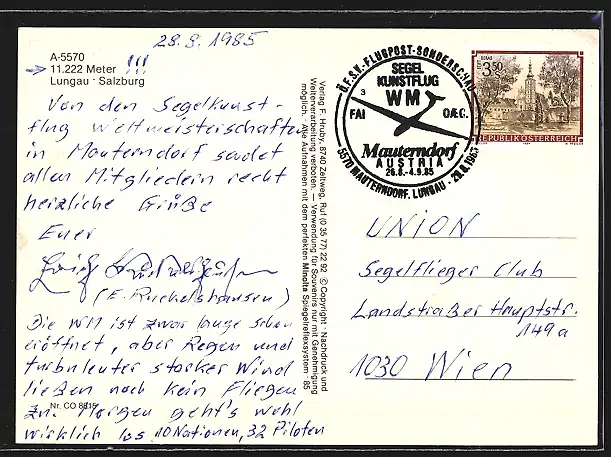 28.8.1985
A-5570
11.222 Meter !!!
Lungau · Salzburg
Von den Segelkunst-
flug Weltmeisterschaften
in Mauterndorf sendet
allen Mitgliedern recht
herzliche Grüße
Euer
(E. Ruckelshausen)
Die WM ist zwar lange schon
eröffnet, aber Regen und
turbulenter starker Wind
ließen noch kein Fliegen
zu. Morgen geht's wohl
Nr. CO 8815
wirklich los. 10 Nationen, 32 Piloten
Verlag F. Hruby, 8740 Zeltweg, Ruf (0 35 77) 22 92 © Copyright · Nachdruck und
Weiterverarbeitung verboten. — Verwendung für Souvenirs nur mit Genehmigung
möglich. · Alle Aufnahmen mit dem perfekten Minolta Spiegelreflexsystem · 85
Ö.F.S.V.-FLUGPOST-SONDERSCHAU
SEGEL
KUNSTFLUG
WM
3
FAI OÆ.C.
Mauterndorf
AUSTRIA
26.8.-4.9.85
5570 MAUTERNDORF, LUNGAU - 29.8.1985
3.50
REPUBLIK ÖSTERREICH
UNION
Segelflieger Club
Landstraßer Hauptstr.
149a
1030 Wien